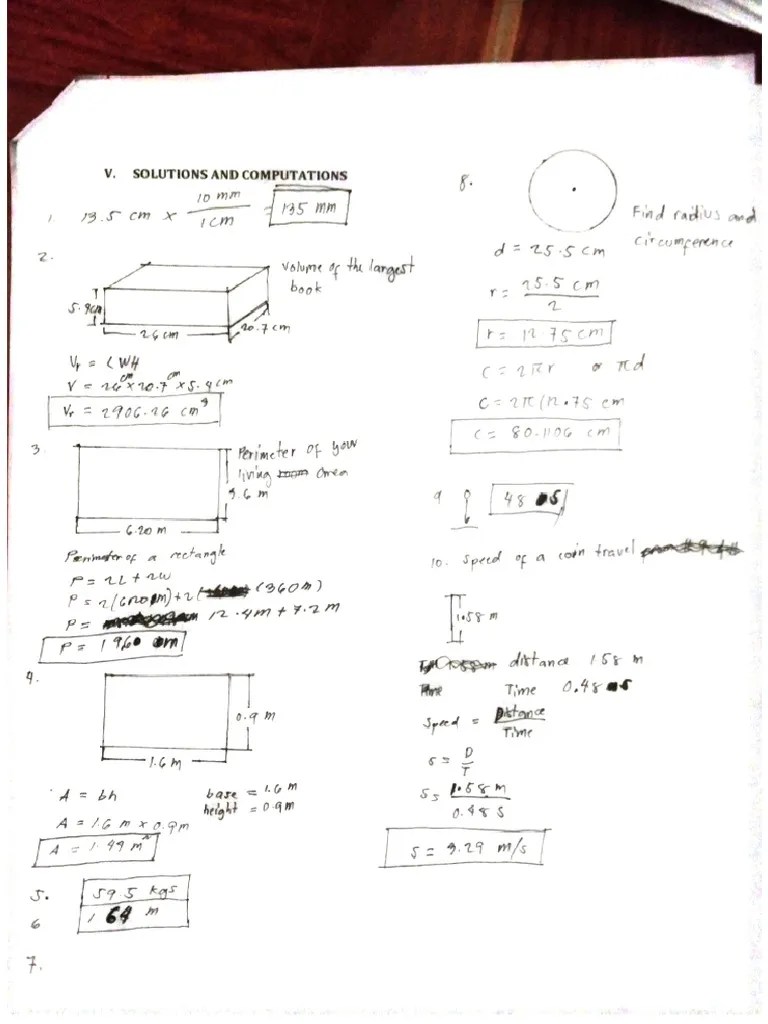 V. SOLUTIONS AND COMPUTATIONS
1. 13.5 cm x 10 mm / 1 cm = 135 mm
2.
Volume of the largest
book
5.4cm
26 cm
20.7 cm
V = LWH
V = 26cm x 20.7cm x 5.4cm
V = 2906.26 cm³
3.
Perimeter of your
living area
3.6 m
6.20 m
Perimeter of a rectangle
P = 2L + 2W
P = 2(6.20m) + 2(3.60m)
P = 12.4m + 7.2m
P = 1960 m
4.
0.9 m
1.6 m
A = bh
base = 1.6 m
height = 0.9m
A = 1.6 m x 0.9m
A = 1.44 m²
5. 59.5 kgs
6 1.64 m
7.
8.
Find radius and
circumference
d = 25.5 cm
r = 25.5 cm
2
r = 12.75 cm
C = 2πr or πd
C = 2π(12.75 cm
C = 80.1106 cm
9 48
10. Speed of a coin travel
1.58 m
distance 1.58 m
Time 0.48 s
Speed = Distance
Time
s = D
T
s = 1.58 m
0.48 s
s = 3.29 m/s